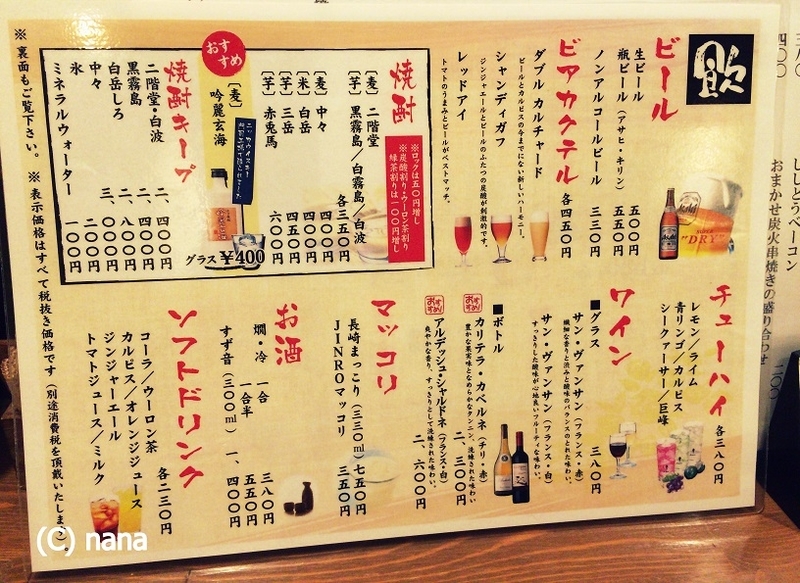 飲
ビール
生ビール 五〇〇円
瓶ビール（アサヒ・キリン） 五五〇円
ノンアルコールビール 三三〇円
ビアカクテル 各四五〇円
ダブル カルチャード
ビールとカルピスの今までにない新しいハーモニー。
シャンディガフ
ジンジャエールとビールのふたつの炭酸が刺激的です。
レッドアイ
トマトのうまみとビールがベストマッチ。
焼酎
※ロックは五〇円増し
※炭酸割り・ウーロン茶割り
緑茶割りは一〇〇円増し
［麦］ 二階堂
［芋］ 黒霧島／白霧島／白波
各三五〇円
［麦］ 中々 四〇〇円
［米］ 白岳 四〇〇円
［芋］ 三岳 四五〇円
［芋］ 赤兎馬 六〇〇円
おすすめ
［麦］ 吟麗玄海
グラス ￥400
焼酎キープ
二階堂・白波 二、四〇〇円
黒霧島 二、四〇〇円
白岳しろ 二、八〇〇円
中々 三、〇〇〇円
氷
ミネラルウォーター 一〇〇円
※裏面もご覧下さい。 ※表示価格はすべて税抜き価格です（別途消費税を頂戴いたします）。
チューハイ 各三八〇円
レモン／ライム
青リンゴ／カルピス
シークァーサー／巨峰
ワイン
■グラス 三八〇円
サン・ヴァンサン（フランス・赤）
繊細な香りと渋みと酸味のバランスのとれた味わい。
サン・ヴァンサン（フランス・白）
すっきりした酸味が心地良いフルーティな味わい。
■ボトル
おすすめ!
カリテラ・カベルネ（チリ・赤） 二、三〇〇円
豊かな果実味となめらかなタンニン、洗練された味わい
おすすめ!
アルデッシュ・シャルドネ（フランス・白） 二、六〇〇円
爽やかな香り、すっきりとして洗練された味わい。
マッコリ
長崎まっこり（三三〇㎖） 七五〇円
JINROマッコリ 三五〇円
お酒
燗・冷 一合 三八〇円
一合半 五五〇円
すず音（三〇〇㎖） 一、四〇〇円
ソフトドリンク 各二三〇円
コーラ／ウーロン茶
カルピス／オレンジジュース
ジンジャーエール
トマトジュース／ミルク
ししとうベーコン
おまかせ炭火串焼きの盛り合わせ
(C) nana